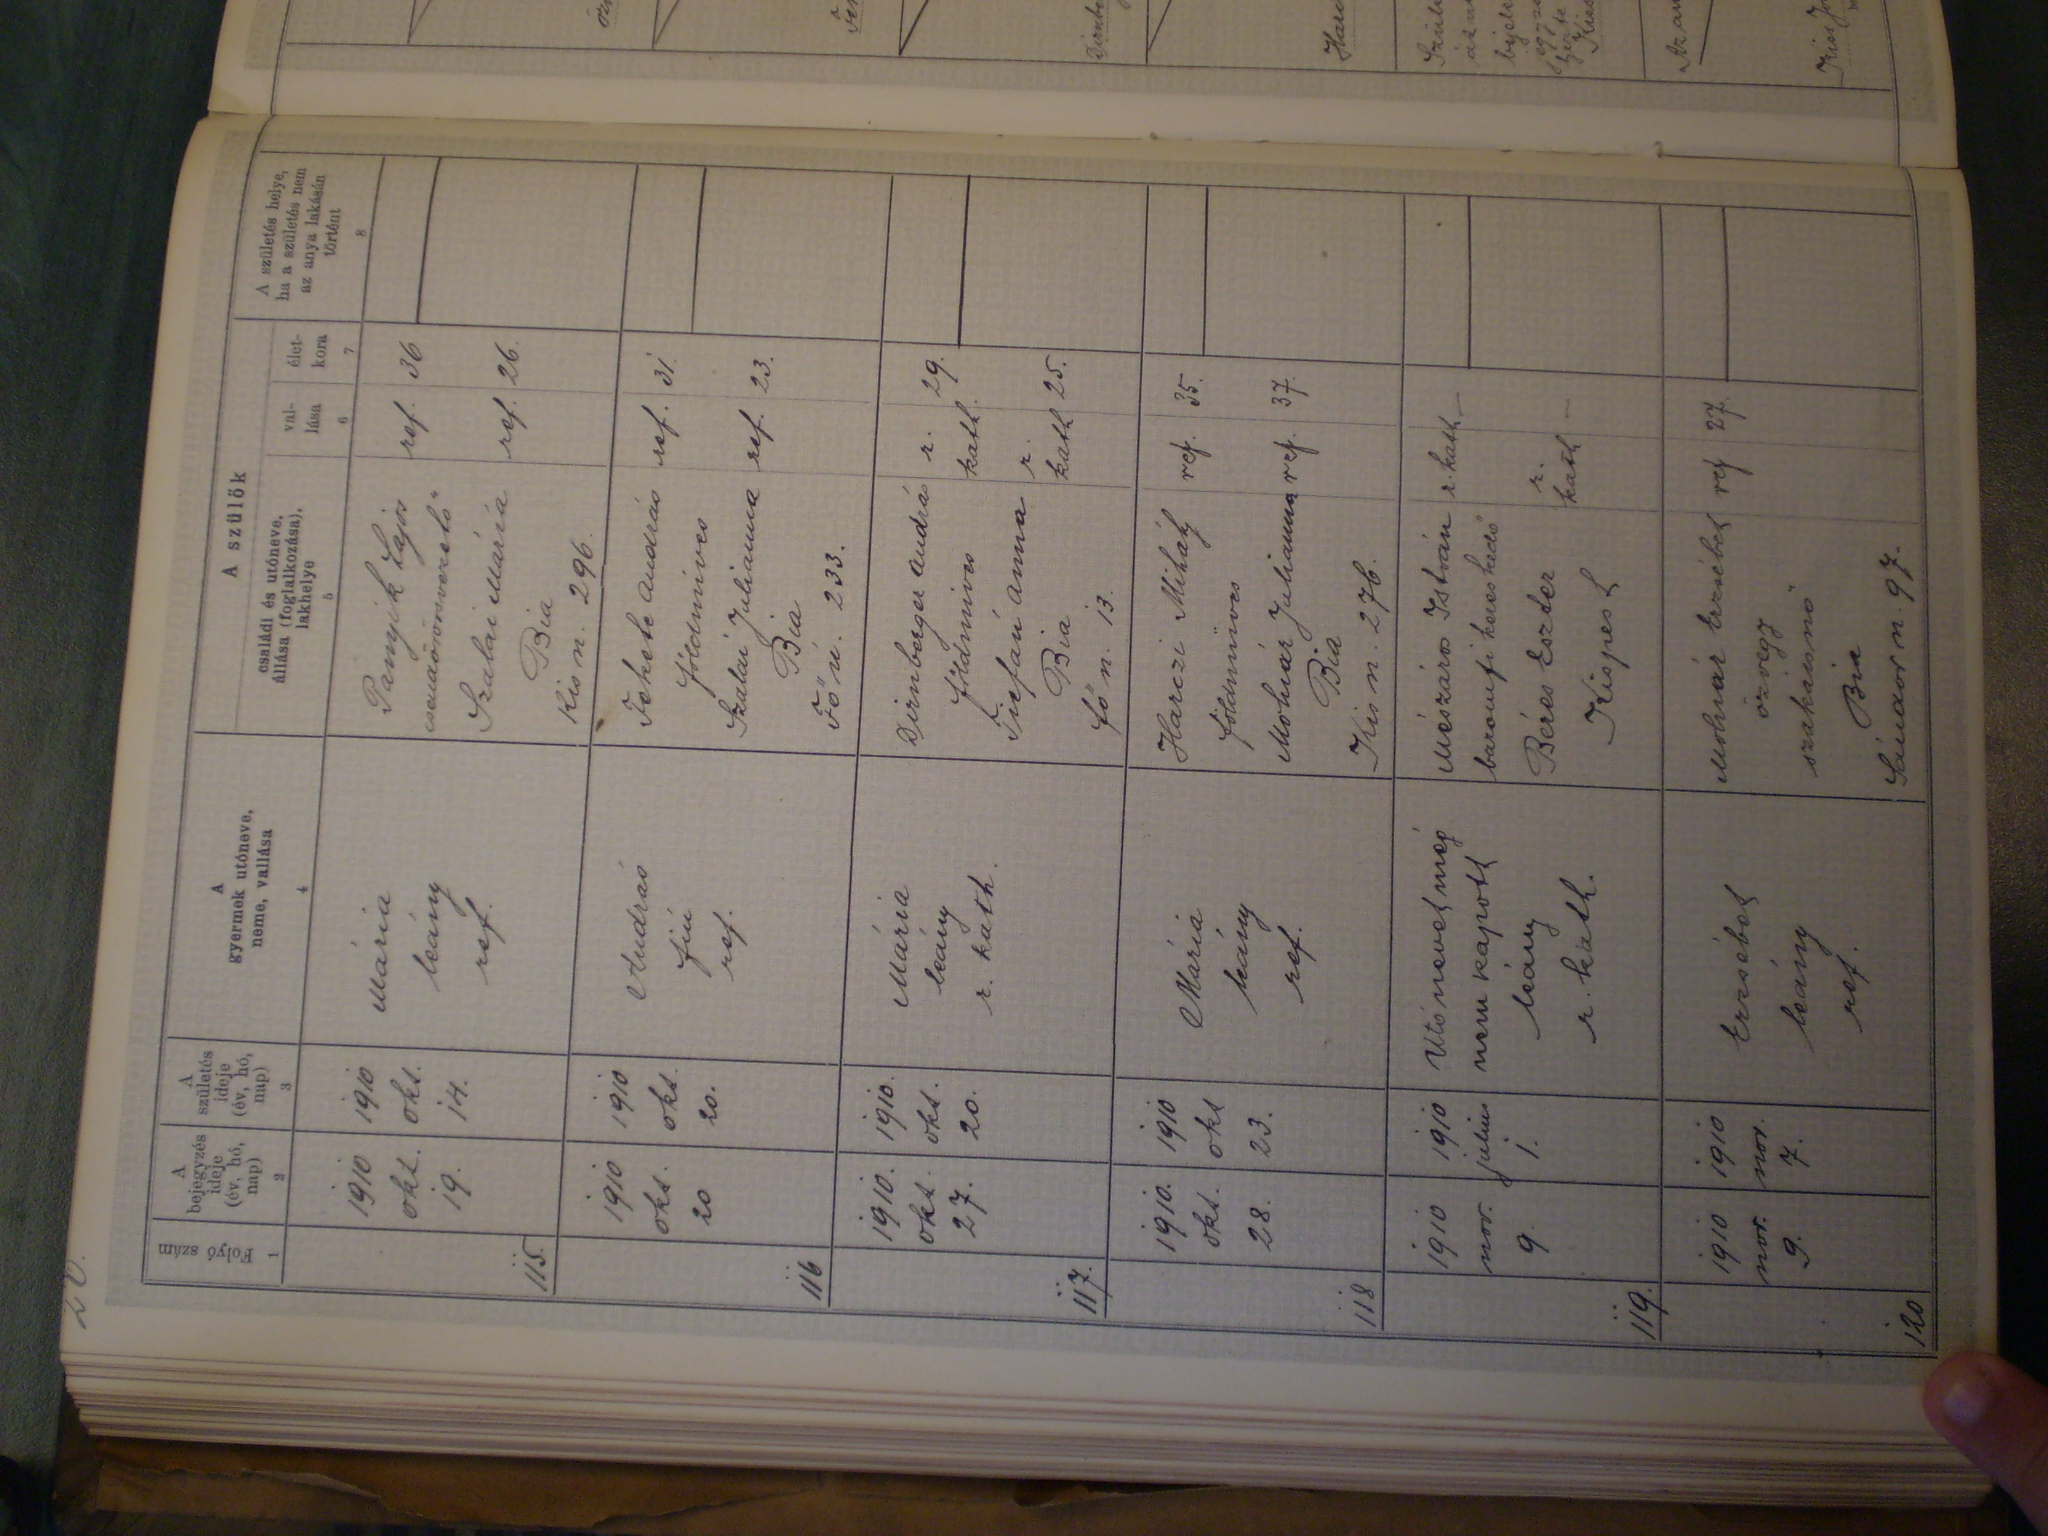 A szülők
Folyó szám
A
bejegyzés
ideje
(év, hó,
nap)
A
születés
ideje
(év, hó,
nap)
A
gyermek utóneve,
neme, vallása
családi és utóneve,
állása (foglalkozása),
lakhelye
val-
lása
élet-
kora
A születés helye,
ha a születés nem
az anya lakásán
történt
1
2
3
4
5
6
7
8
115.
1910
okt.
19.
1910
okt.
14.
Mária
leány
ref.
Lajos
csendőrörsvezető
Szalai Mária
Bia
Kis n. 296.
ref.
ref.
36
26.
116
1910
okt.
20
1910
okt.
20.
András
fiu
ref.
Fekete András
földmives
Szalai Julianna
Bia
Fő u. 233.
ref.
ref.
31.
23.
117.
1910.
okt.
27.
1910.
okt.
20.
Mária
leány
r. kath.
Dirnberger András
földmives
Anna
Bia
fő n. 13.
r.
kath.
r.
kath
29.
25.
118
1910.
okt.
28.
1910
okt
23.
Mária
leány
ref.
Harczi Mihály
földmüves
Molnár Julianna
Bia
Kis n. 276.
ref.
ref.
35.
37.
119.
1910
nov.
9.
1910
julius
1.
Utónevet még
nem kapott
leány
r. kath.
Mészáros István
baromfi kereskedő
Béres Eszter
Kispest
r. kath
r.
kath
—
—
120
1910
nov.
9.
1910
nov.
7.
Erzsébet
leány
ref.
Molnár Erzsébet
özvegy
szakácsnő
Bia
Sándor n. 97.
ref
27.